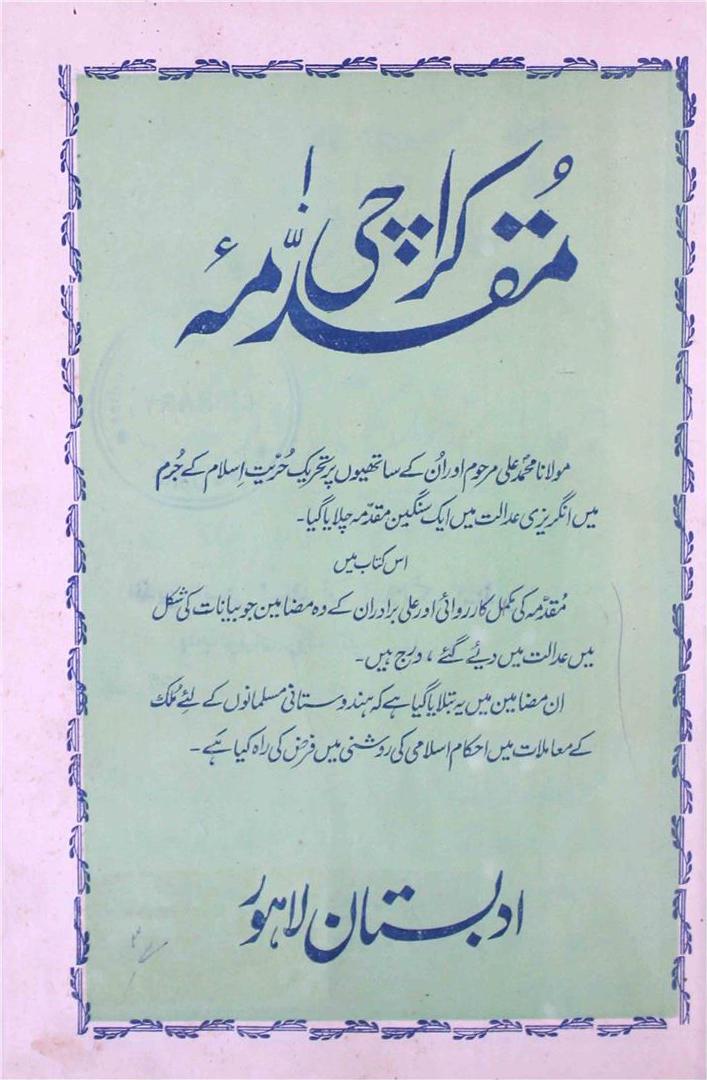 مُقدّمۂ کراچی!
مولانا محمد علی مرحوم اور اُن کے ساتھیوں پر تحریک حُرّیتِ اِسلام کے جُرم
میں انگریزی عدالت میں ایک سنگین مقدّمہ چلایا گیا۔
اس کتاب میں
مُقدّمہ کی مکمل کارروائی اور علی برادران کے وہ مضامین جو بیانات کی شکل
میں عدالت میں دیئے گئے، درج ہیں۔
ان مضامین میں یہ بتلایا گیا ہے کہ ہندوستانی مسلمانوں کے لئے مُلک
کے معاملات میں احکام اسلامی کی روشنی میں فرض کی راہ کیا ہَے۔
ادبستان لاہور